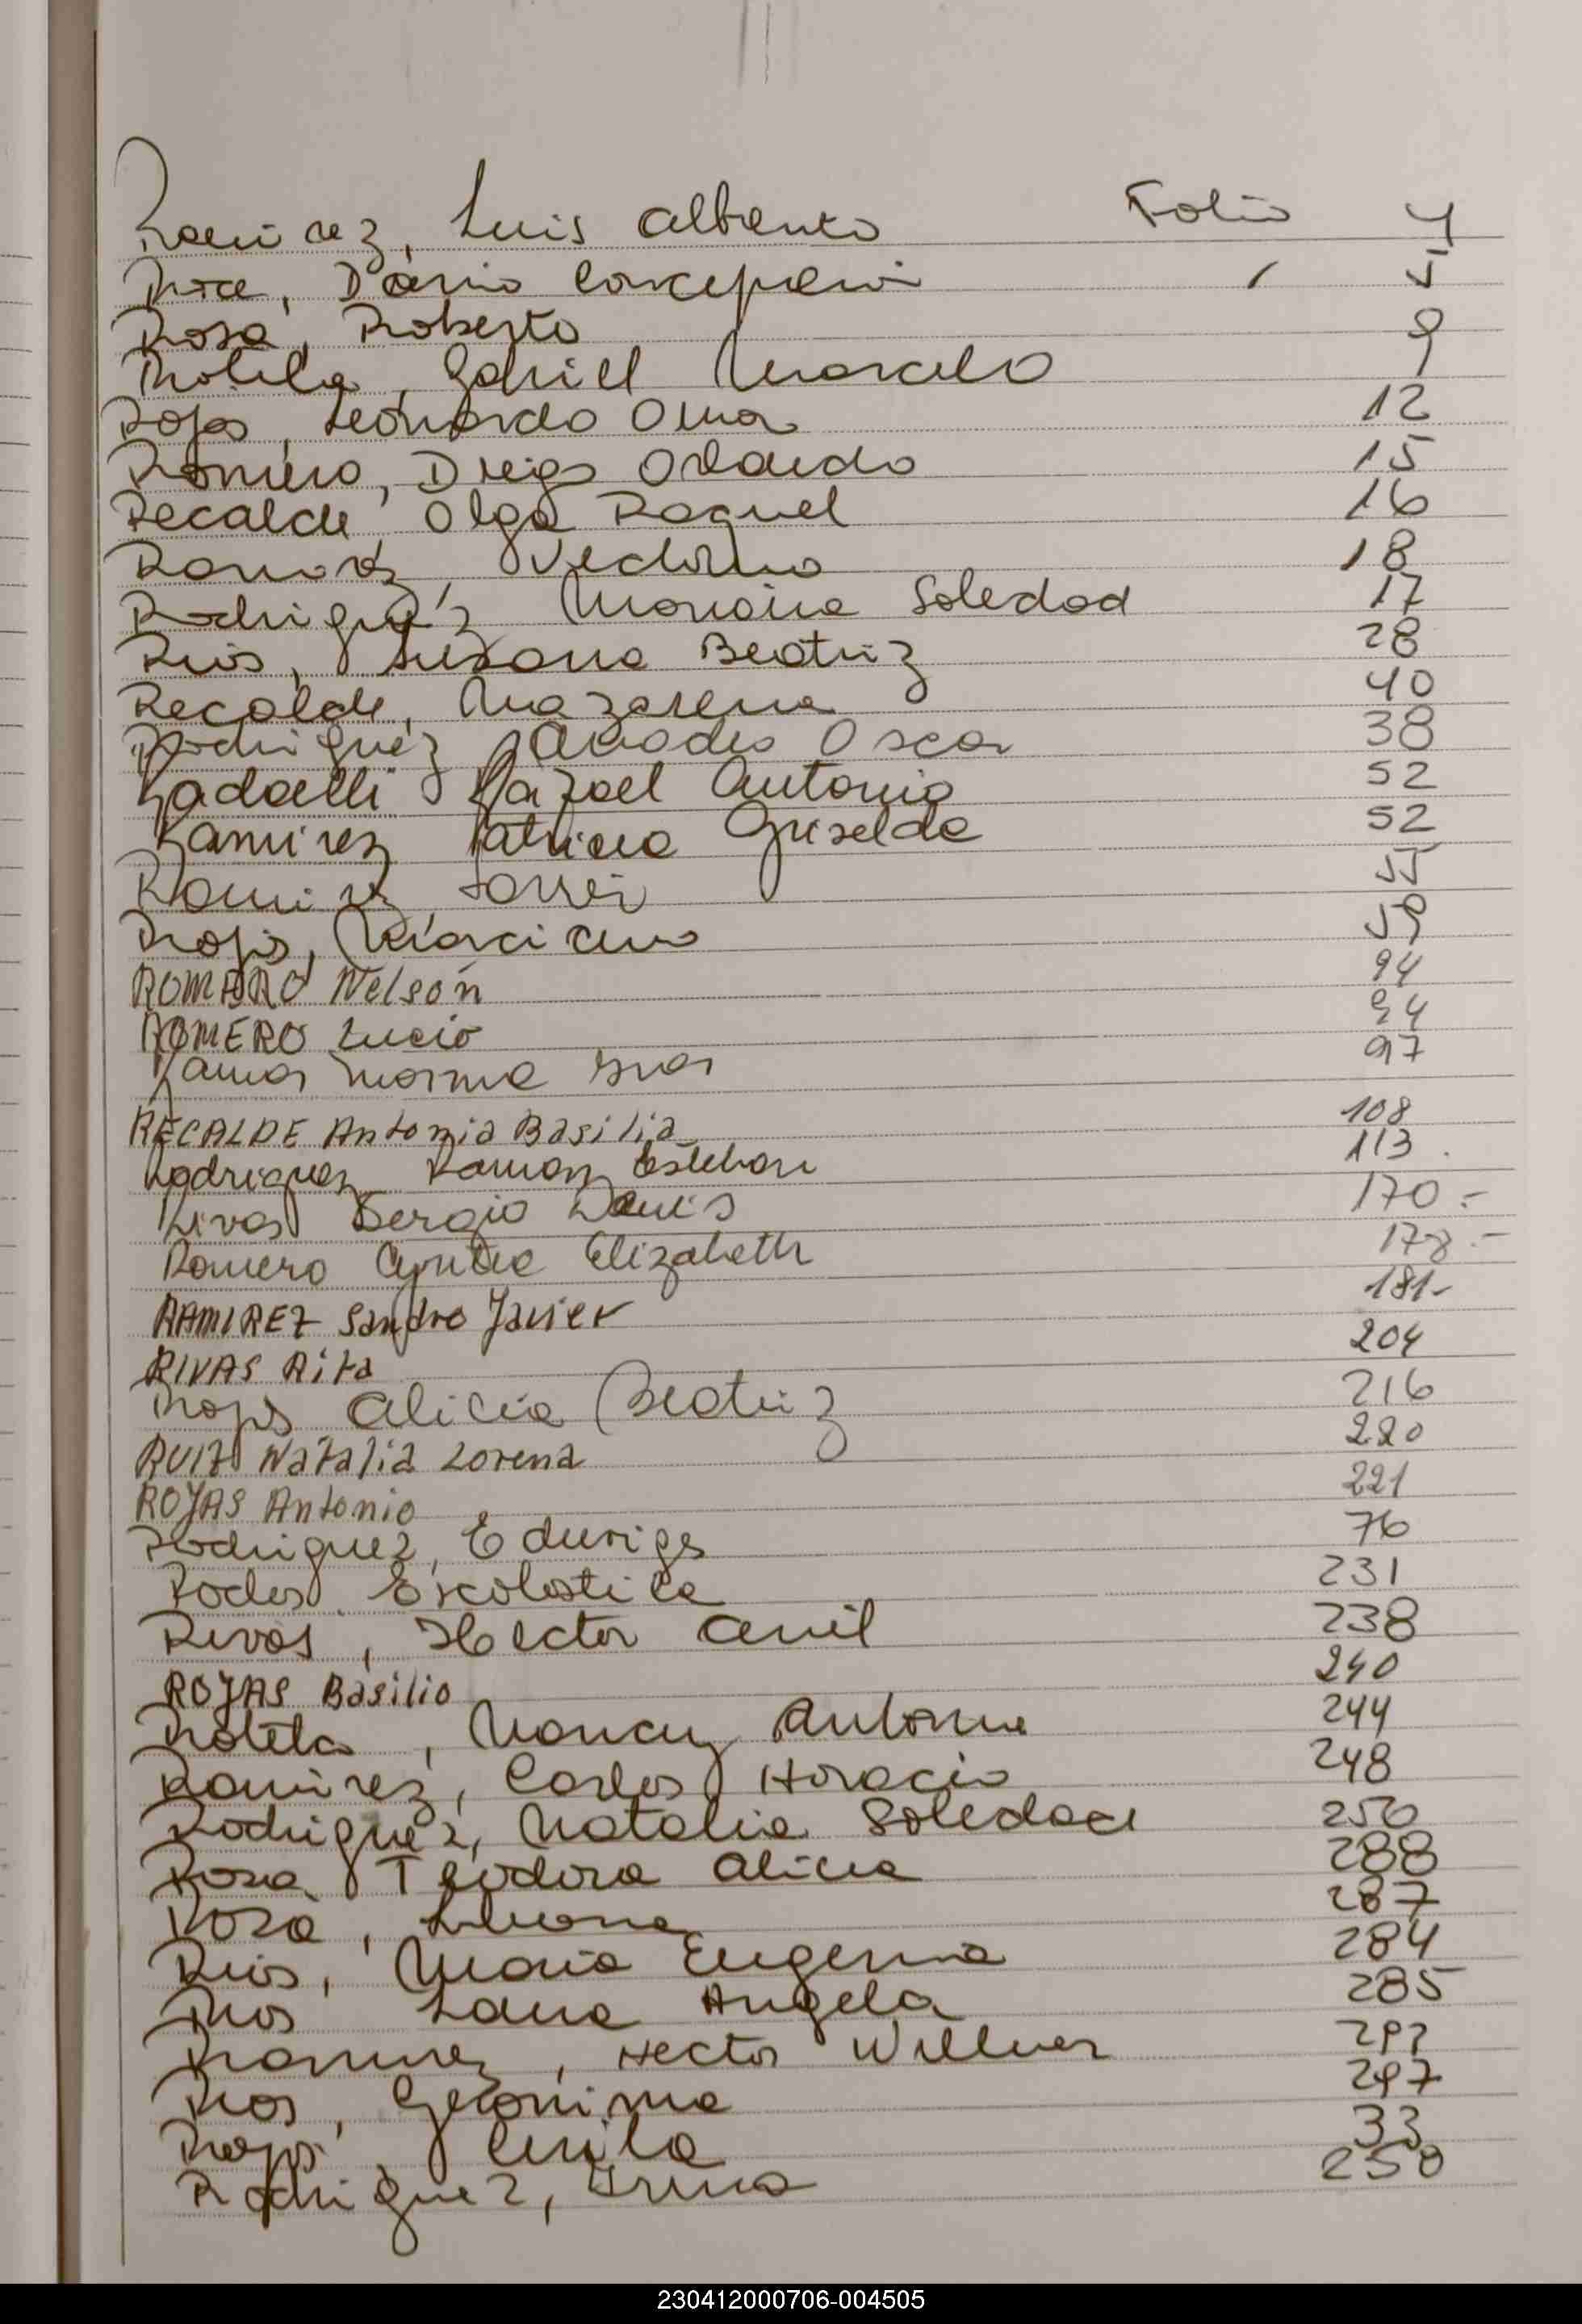 Ramirez, Luis Alberto Folio 4
Roa, Dario Concepción 5
Rosa, Roberto 9
Rotela, Gabriel Marcelo
Rojas, Leonardo Omar 12
Romero, Diego Orlando 15
Recalde Olga Raquel 16
Ramirez, 18
Rodriguez Mariana Soledad 17
Rios, Susana Beatriz 28
Recalde, Nazarena 40
Rodriguez Oscar 38
Radaelli Rafael Antonio 52
Ramirez Patricia Griselda 52
Ramirez 55
Rojas, Marciano 59
ROMERO Nelson 94
ROMERO Lucio 94
Ramos Norma 97
RECALDE Antonia Basilia 108
Rodriguez Ramon Esteban 113
Rivas Sergio Denis 170.-
Romero Cyntia Elizabeth 178.-
RAMIREZ Sandro Javier 181-
RIVAS Rita 204
Rojas Alicia Beatriz 216
RUIZ Natalia Lorena 220
ROJAS Antonio 221
Rodriguez, Eduriges 76
Rodas Escolastica 231
Rivas, Hector Anil 238
ROJAS Basilio 240
Rotela, Nancy Antonia 244
Ramirez, Carlos Horacio 248
Rodriguez, Natalia Soledad 250
Rosa Teodora Alicia 288
Rosa, 287
Rios, Maria Eugenia 284
Rios Angela 285
Ramirez, Hector Wilmer
Rios, Geronima 297
Rojas, Cirila 33
Rodriguez, Irma 250
230412000706-004505